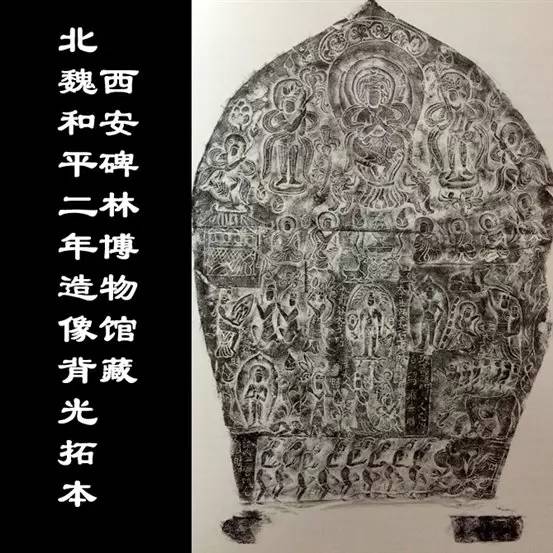 西安碑林博物馆藏
北魏和平二年造像背光拓本